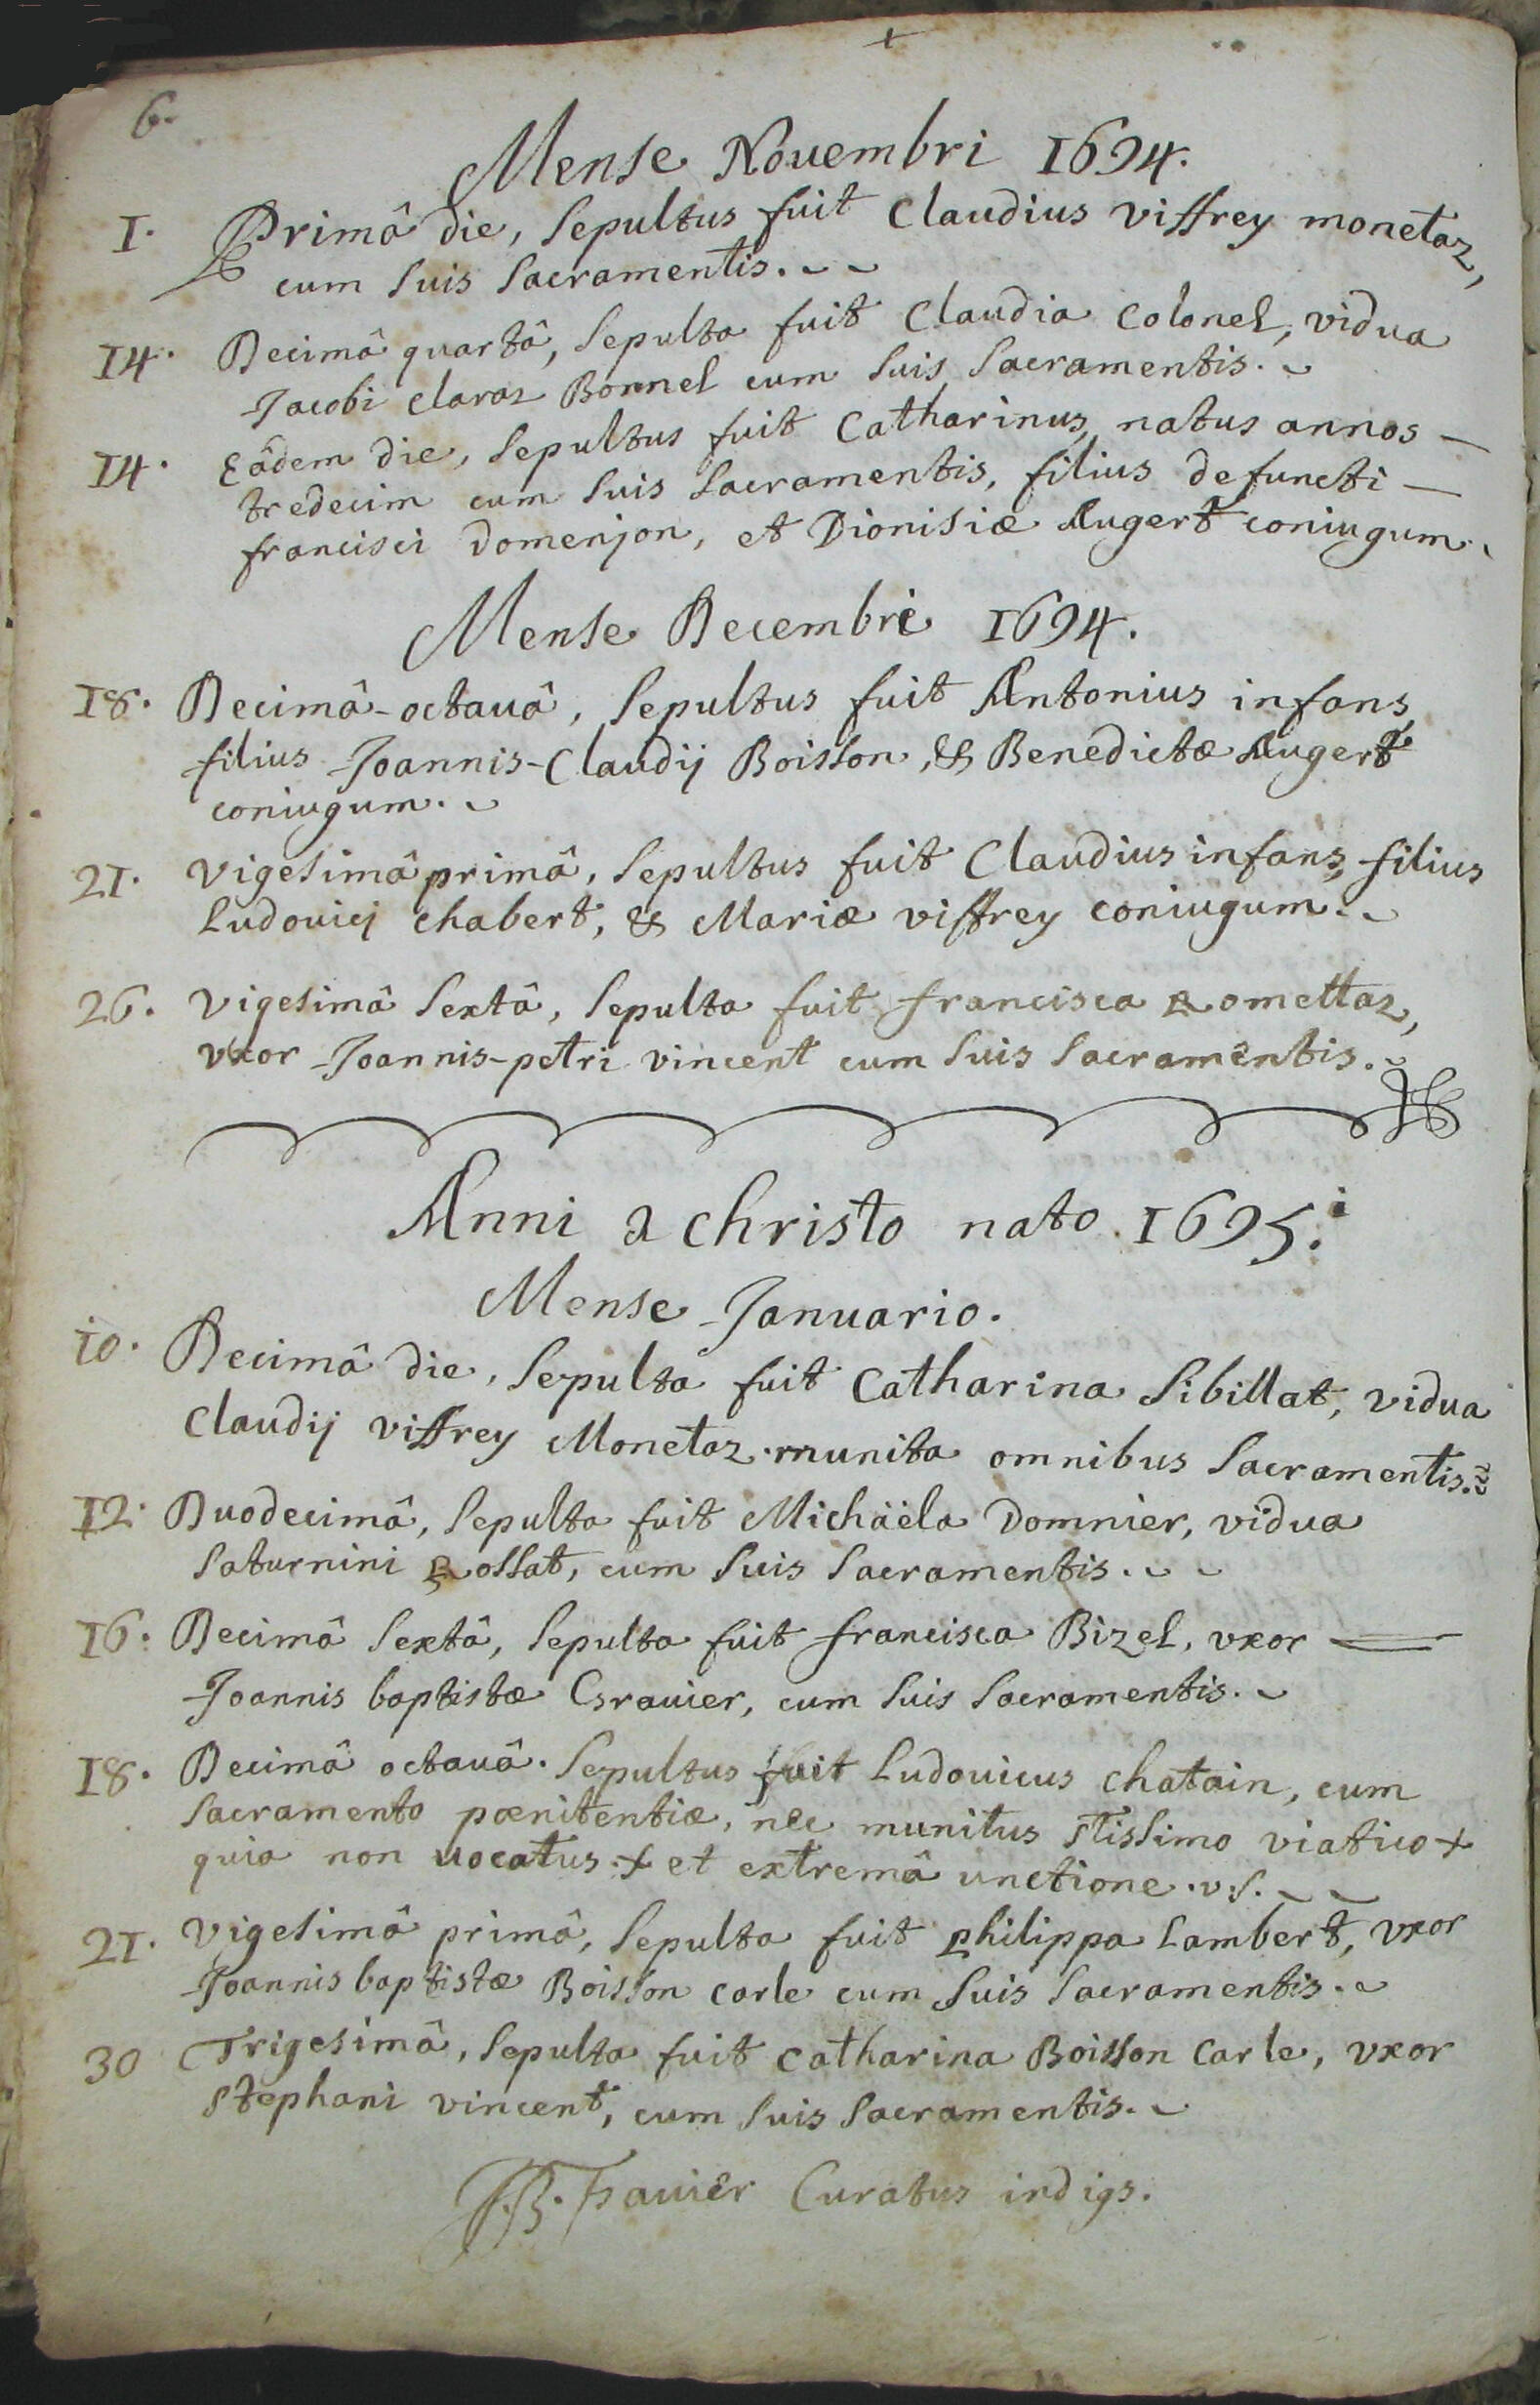 6.
Mense Nouembri 1694.
1. Primâ die, sepultus fuit Claudius viffrey monetaz,
cum suis sacramentis.
14. Decimâ quartâ, sepulta fuit Claudia Colonel, vidua
Jacobi claraz Bonnel cum suis sacramentis.
14. Eâdem die, sepultus fuit Catharinus, natus annos
tredecim cum suis sacramentis, filius defuncti
francisci Domenjon, et Dionisiæ Augert coniugum.
Mense Decembri 1694.
18. Decimâ-octauâ, sepultus fuit Antonius infans,
filius Joannis-Claudij Boisson, & Benedictæ Augert
coniugum.
21. vigesimâ primâ, sepultus fuit Claudius infans, filius
Ludouicj chabert, & Mariæ viffrey coniugum.
26. vigesimâ sextâ, sepulta fuit francisca Romettaz,
vxor Joannis-petri vincent cum suis sacramentis.
Anni a christo nato 1695.
Mense Januario.
10. Decimâ die, sepulta fuit Catharina Sibillat, vidua
Claudij viffrey Monetaz. munita omnibus sacramentis.
12. Duodecimâ, sepulta fuit Michaëla Domnier, vidua
saturnini Rossat, cum suis sacramentis.
16. Decimâ sextâ, sepulta fuit francisca Bizel, vxor
Joannis baptistæ Grauier, cum suis sacramentis.
18. Decimâ octauâ. sepultus fuit Ludouicus chatain, cum
sacramento pœnitentiæ, nec munitus stissimo viatico +
quia non uocatus. + et extremâ unctione .v.s.
21. vigesimâ primâ, sepulta fuit philippa Lambert, vxor
Joannis baptistæ Boisson carle cum suis sacramentis.
30 Trigesimâ, sepulta fuit catharina Boisson Carle, vxor
stephani vincent, cum suis sacramentis.
Curatus indigs.